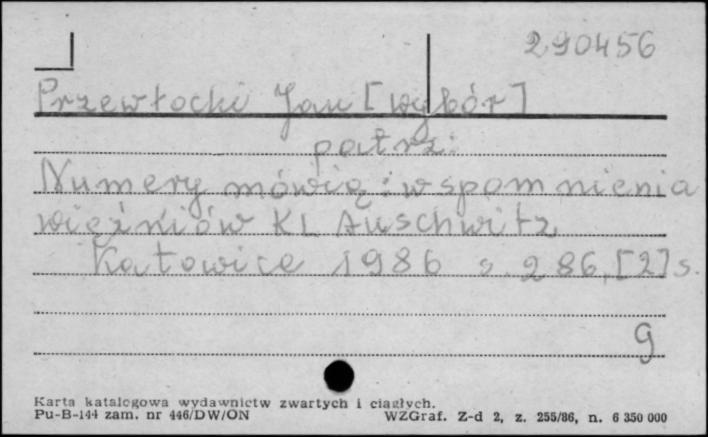 290456
Przewłocki Jan [wybór]
patrz:
Numery mówią: wspomnienia
więźniów KL Auschwitz
Katowice 1986 s. 286, [2] s.
g
Karta katalogowa wydawnictw zwartych i ciągłych.
Pu-B-144 zam. nr 446/DW/ON WZGraf. Z-d 2, z. 255/86, n. 6 350 000